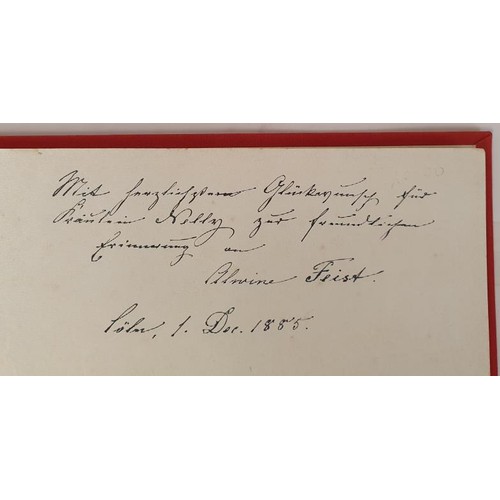 Mit herzlichstem Glückwunsch für
Fräulein Nelly zur freundlichen
Erinnerung an
Alwine Feist.
Cöln, 1. Dec. 1885.